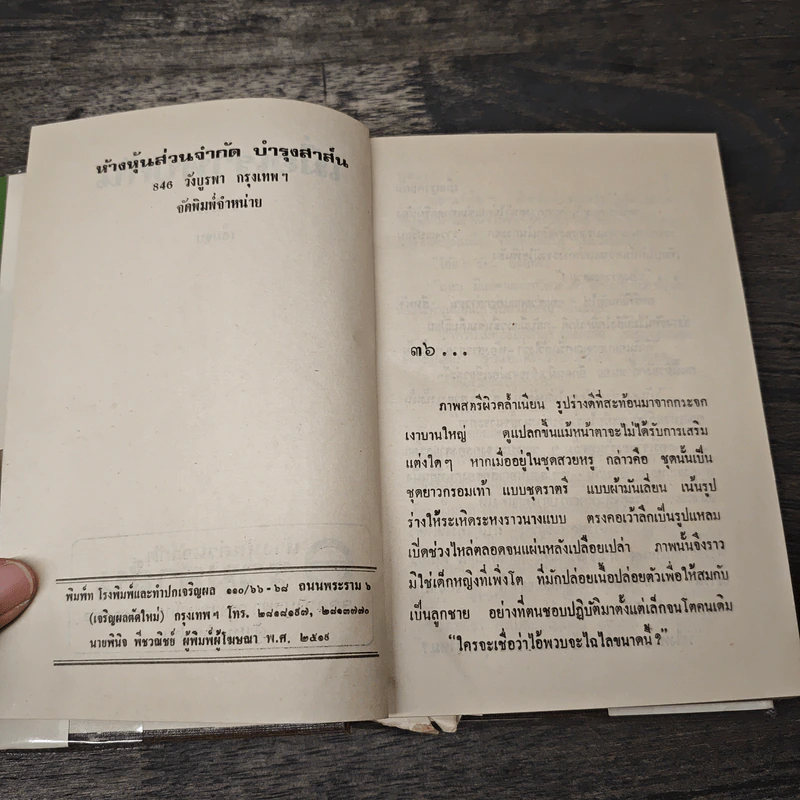 ห้างหุ้นส่วนจำกัด บำรุงสาส์น
846 วังบูรพา กรุงเทพฯ
จัดพิมพ์จำหน่าย
พิมพ์ที่ โรงพิมพ์และทำปกเจริญผล ๑๑๐/๖๖-๖๘ ถนนพระราม ๖
(เจริญผลตัดใหม่) กรุงเทพฯ โทร. ๒๘๑๘๑๙๗, ๒๘๑๓๗๗๐
นายพินิจ พืชวณิชย์ ผู้พิมพ์ผู้โฆษณา พ.ศ. ๒๕๑๙
๓๖...
ภาพสตรีผิวคล้ำเนียน รูปร่างดีที่สะท้อนมาจากกระจก
เงาบานใหญ่ ดูแปลกขึ้นแม้หน้าตาจะไม่ได้รับการเสริม
แต่งใดๆ หากเมื่ออยู่ในชุดสวยหรู กล่าวคือ ชุดนั้นเป็น
ชุดยาวกรอมเท้า แบบชุดราตรี แบบผ้ามันเลื่อน เน้นรูป
ร่างให้ระเหิดระหงราวนางแบบ ตรงคอเว้าลึกเป็นรูปแหลม
เปิดช่วงไหล่ตลอดจนแผ่นหลังเปลือยเปล่า ภาพนั้นจึงราว
มิใช่เด็กหญิงที่เพิ่งโต ที่มักปล่อยเนื้อปล่อยตัวเพื่อให้สมกับ
เป็นลูกชาย อย่างที่ตนชอบปฏิบัติมาตั้งแต่เล็กจนโตคนเดิม
“ใครจะเชื่อว่าไอ้พวบจะไฉไลขนาดนี้?”